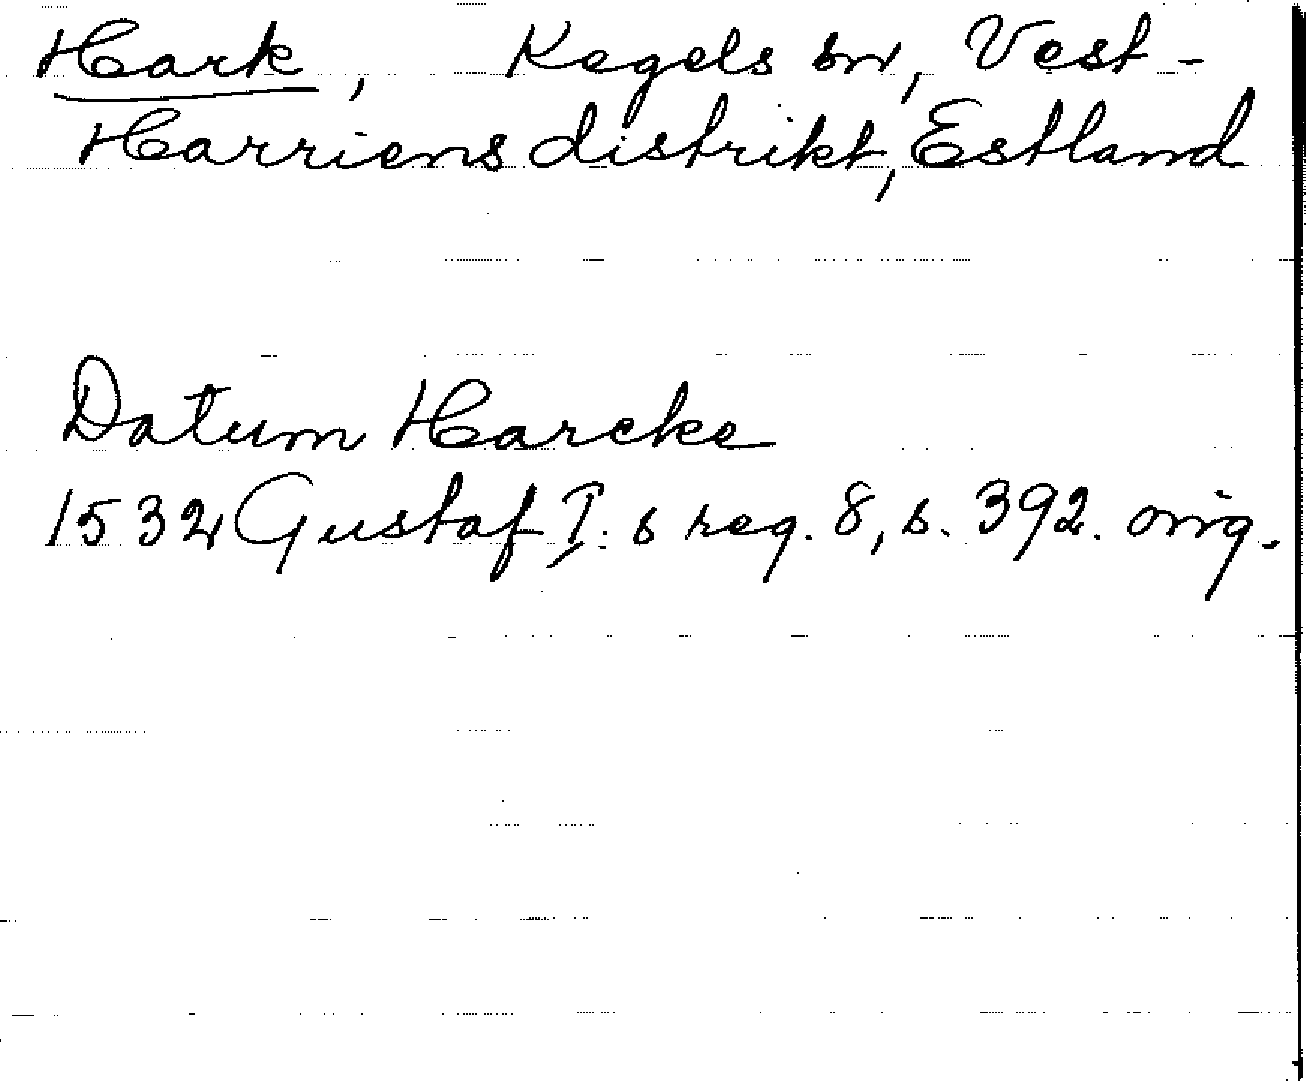 Hark, Kegels sn, Vest-
Harriens distrikt, Estland
Datum Harcke
1532 Gustaf I:s reg. 8, s. 392. orig.